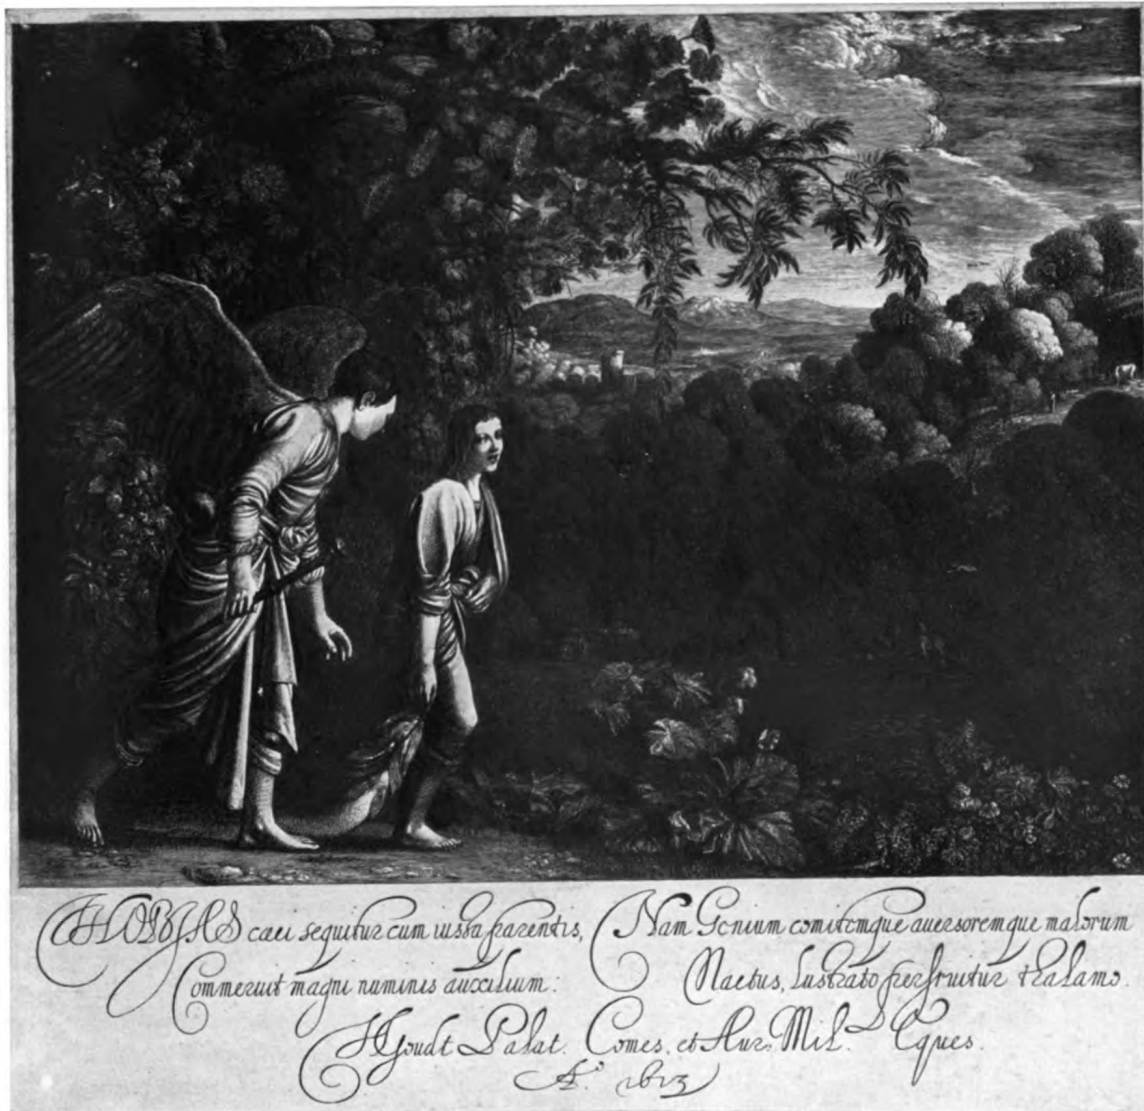 THOBIAS caeci sequitur cum iussa parentis,
Commeruit magni numinis auxilium:
Nam Genium comitemque aversoremque malorum
Nactus, lustrato perfruitur thalamo.
HGoudt Palat. Comes, et Aur. Mil. Eques.
A.º 1613